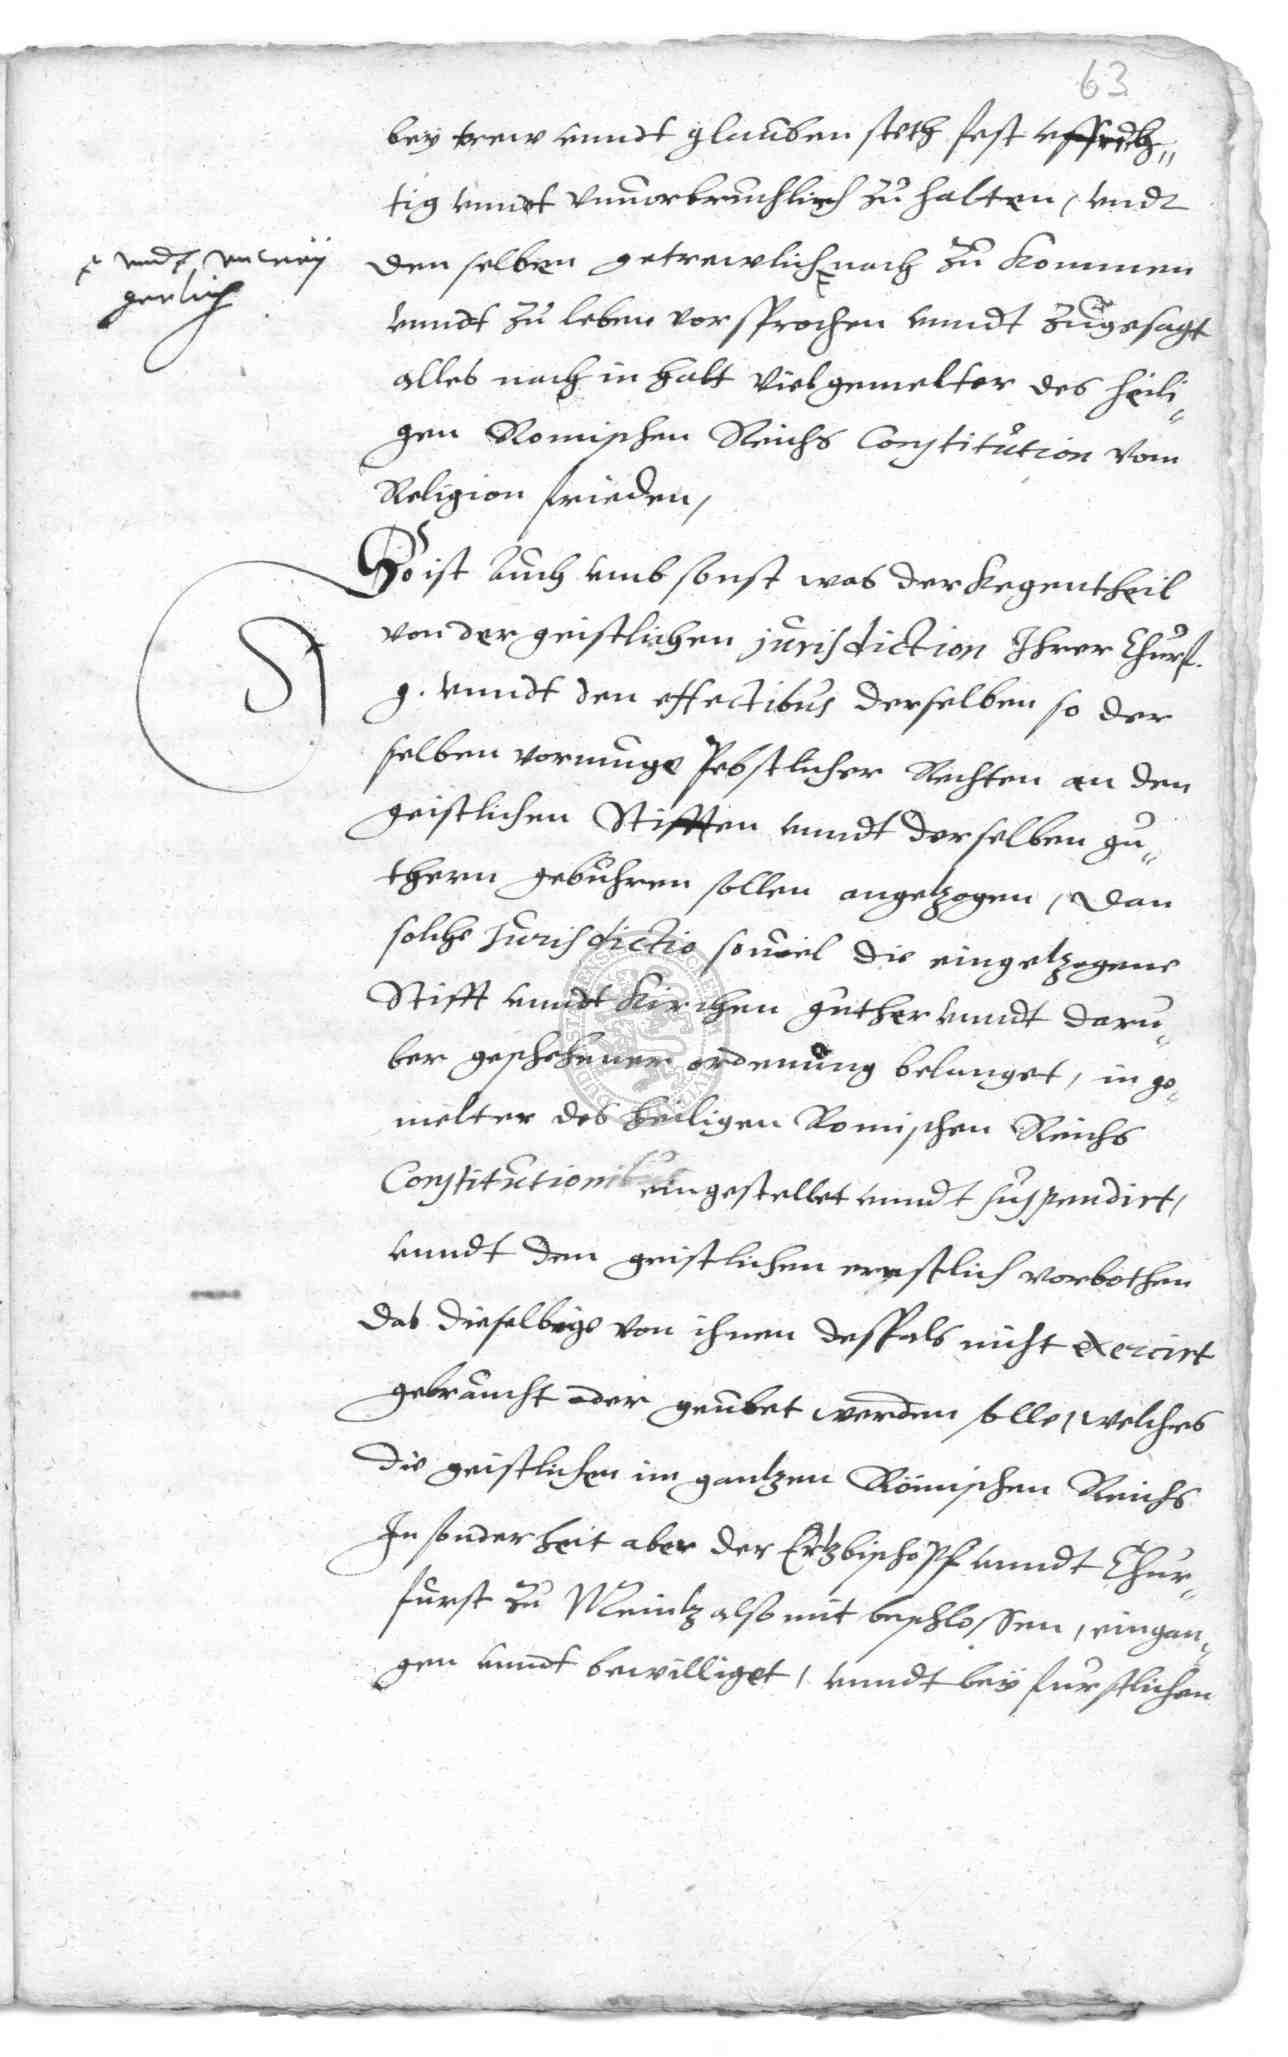 63
bey trew unndt glauben steth fest uffrich„
tig unndt unuorbruchlich zu halten, undt
denselben getrewlich nach zu kommen
undt unwey
gerlich
unndt zu leben vorsprochen unndt zugesagt
alles nach inhalt vielgemelter des heili„
gen Romischen Reichs Constitution vom
Religion frieden,
So ist auch umbsonst was der kegentheil
von der geistlichen jurisdiction Ihrer Churf.
g. unndt den effectibus derselben so der
selben vormuge Pebstlicher Rechten an den
geistlichen Stifften unndt derselben gu„
thern gebuhren sollen angetzogen, Dan
solche Jurisdictio souiel die eingetzogene
Stifft unndt Kirchen guther unndt daru„
ber geschehener ordenung belanget, in ge„
melter des heiligen Romischen Reichs
Constitutionibus eingestellet unndt suspendirt,
unndt den geistlichen ernstlich vorbothen
das dieselbige von ihnen desfals nicht exercirt
gebraucht oder geubet werden solle, welches
die geistlichen im gantzen Römischen Reichs
In sonderheit aber der Ertzbischoff unndt Chur„
furst zu Meintz also mit beschlossen, eingan„
gen unndt bewilliget, unndt bey furstlichen